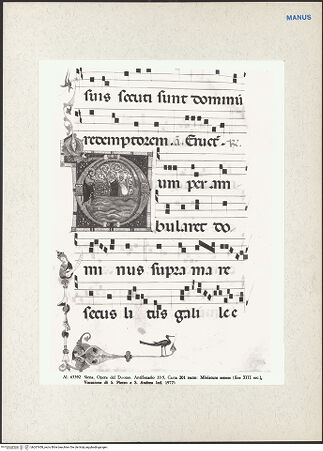 MANUS
suis secuti sunt dominū
redemptorem. ã. Eruct̄. ℟.
um per am
bularet do
mi nus supra ma re
secus li tus gali le e
Siena, Opera del Duomo. Antifonario 33-5. Carta 201 recto: Miniatura senese (fine XIII sec.),
Vocazione di S. Pietro e S. Andrea